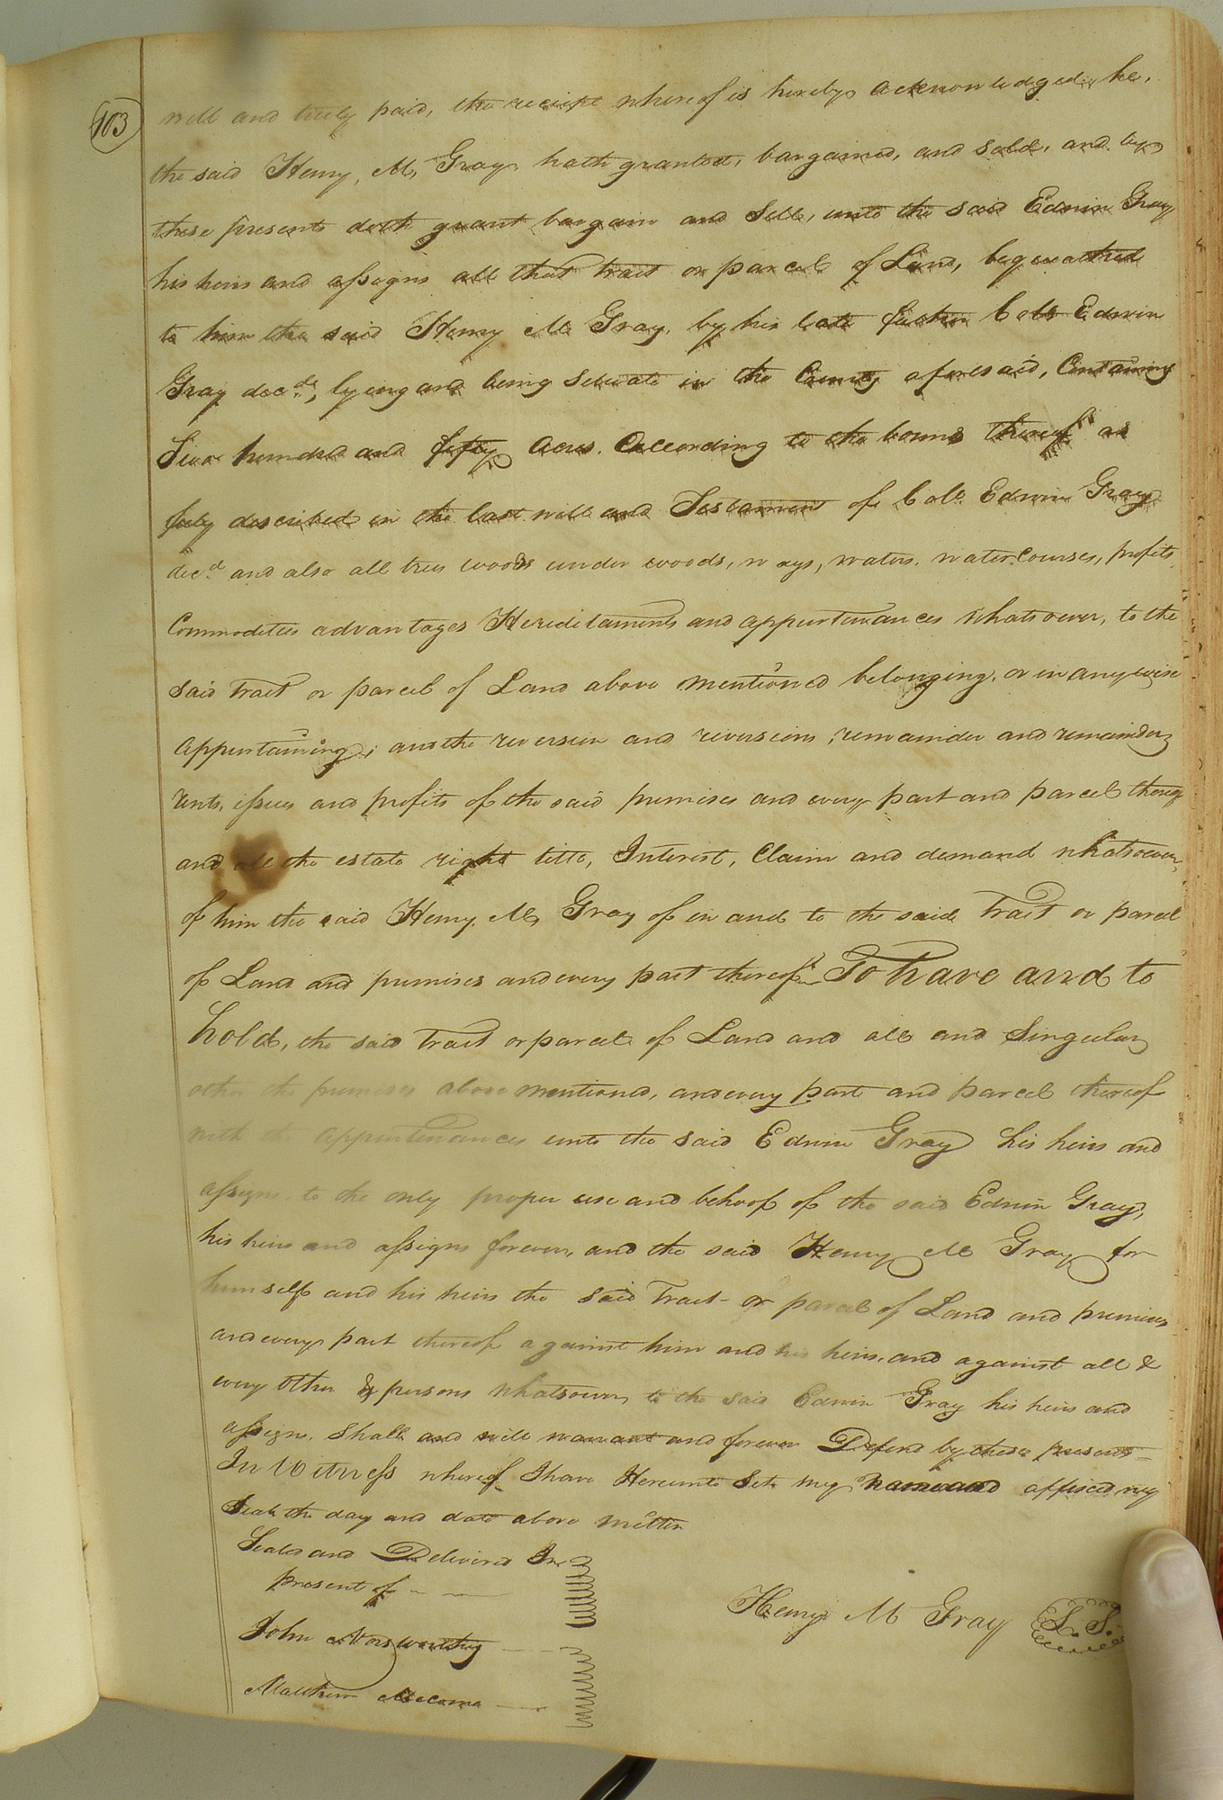 103
well and truly paid, the reciept whereof is hereby acknowledged, he,
the said Henry, M, Gray, hath granted, bargained, and sold, and by
these presents doth grant bargain and Sell, unto the said Edwin Gray
his heirs and assigns all that tract or parcel of Land, bequeathed
to him the said Henry M Gray, by his late father Colo Edwin
Gray decd., lyeng and being Setuate in the County aforesaid, Containing
hundred and fifty acres. according to the bounds thereof as
fuly described in the last will and Testament of Colo. Edwin Gray
decd and also all trees woods under woods, ways, waters, water courses, profits
Commodities advantages Hereditaments and appurtenances whatsoever, to the
said tract or parcel of Land above mentioned belonging, or in any wise
appurtaining; and the reversion and reversions, remainder and remainders
rents, issues and profits of the said premises and every part and parcel thereof
and all the estate right title, Interest, Claim and demand whatsoever,
of him the said Henry, M, Gray of in and to the said tract or parcel
of Land and premises and every part thereof To have and to
hold, the said tract or parcel of Land and all and Singular
other the premises above mentioned, and every part and parcel thereof
with the appurtenances unto the said Edwin Gray his heirs and
assigns to the only proper use and behoof of the said Edwin Gray,
his heirs and assigns forever, and the said Henry M Gray for
himself and his heirs the said tract or parcel of Land and premises
and every part thereof against him and his heirs, and against all &
every other & persons whatsoever, to the said Edwin Gray his heirs and
assigns. Shall and will warrant and forever Defend by these presents
In Witness whereof I have Hereunto Set my name and affixed my
Seal the day and date above written
Sealed and Delivered In
present of
Henry M Gray L.S.
John Norsworthy
Matthew